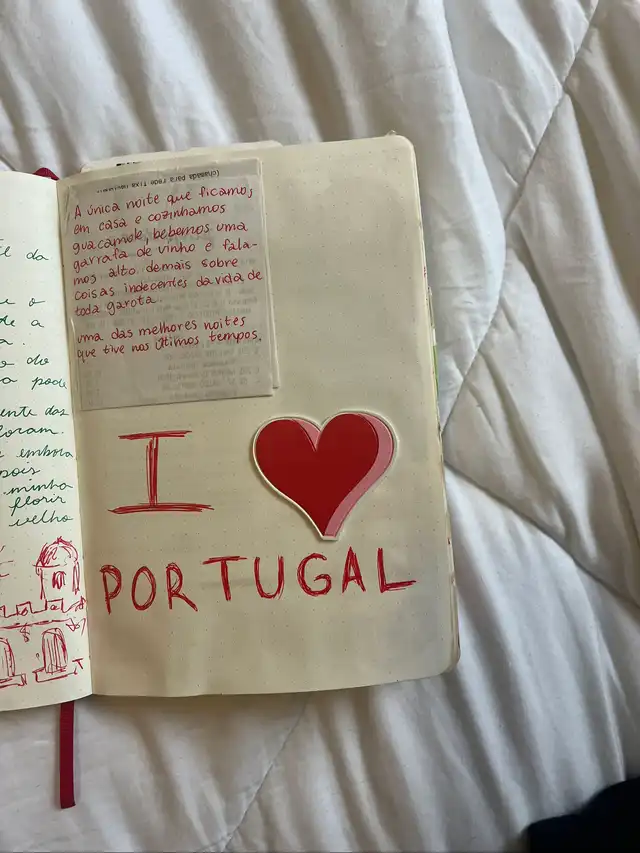 da
o
a
do
pode
embora
minha
florir
velho
(chamada para rede fixa
A única noite que ficamos
em casa e cozinhamos
guacamole, bebemos uma
garrafa de vinho e fala-
mos alto demais sobre
coisas indecentes da vida de
toda garota.
uma das melhores noites
que tive nos últimos tempos.
I
PORTUGAL